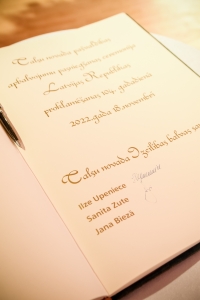 Talsu novada pašvaldības
apbalvojumu pasniegšanas ceremonija
Latvijas Republikas
proklamēšanas 104. gadadienā
2022.gada 18.novembrī
Talsu novada Izcilības balvas
Ilze Upeniece
Sanita Zute
Jana Bieza